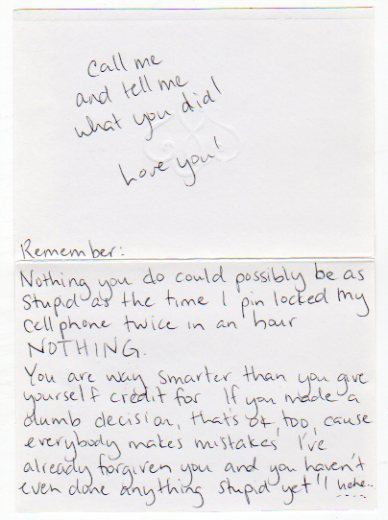 Call me
and tell me
what you did!
Love you!
Remember:
Nothing you do could possibly be as
stupid as the time I pin locked my
cell phone twice in an hour
NOTHING.
You are way smarter than you give
yourself credit for If you made a
dumb decision, that's ok, too, cause
everybody makes mistakes I've
already forgiven you and you haven't
even done anything stupid yet!! hehe..